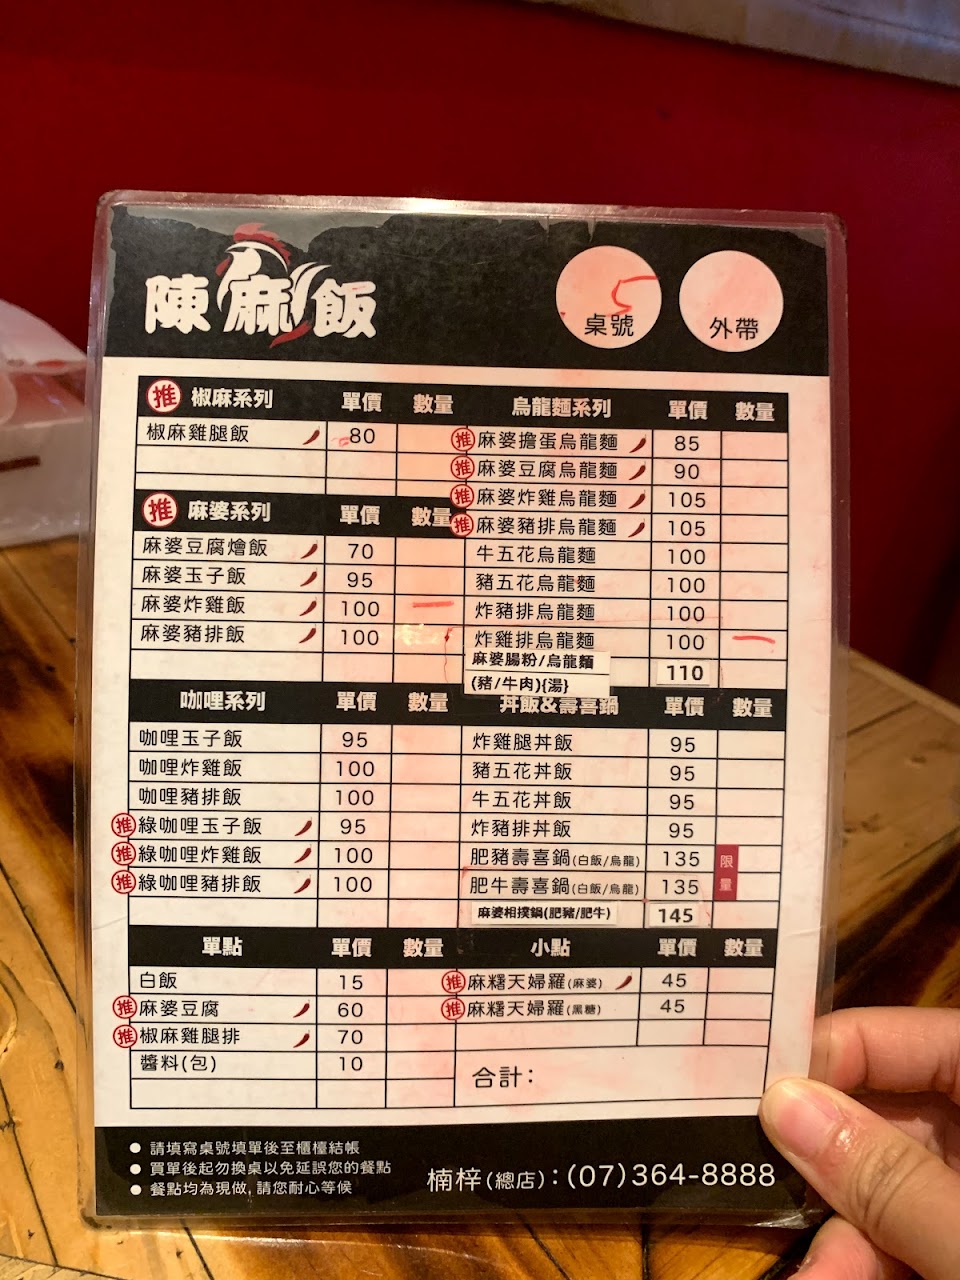 陳麻飯
5
桌號
外帶
推 椒麻系列 單價 數量
椒麻雞腿飯 80
推 麻婆系列 單價 數量
麻婆豆腐燴飯 70
麻婆玉子飯 95
麻婆炸雞飯 100 一
麻婆豬排飯 100
烏龍麵系列 單價 數量
推 麻婆擔蛋烏龍麵 85
推 麻婆豆腐烏龍麵 90
推 麻婆炸雞烏龍麵 105
推 麻婆豬排烏龍麵 105
牛五花烏龍麵 100
豬五花烏龍麵 100
炸豬排烏龍麵 100
炸雞排烏龍麵 100 一
麻婆腸粉/烏龍麵 110
(豬/牛肉){湯}
咖哩系列 單價 數量
咖哩玉子飯 95
咖哩炸雞飯 100
咖哩豬排飯 100
推 綠咖哩玉子飯 95
推 綠咖哩炸雞飯 100
推 綠咖哩豬排飯 100
丼飯&壽喜鍋 單價 數量
炸雞腿丼飯 95
豬五花丼飯 95
牛五花丼飯 95
炸豬排丼飯 95
肥豬壽喜鍋(白飯/烏龍) 135
肥牛壽喜鍋(白飯/烏龍) 135
限量
麻婆相撲鍋(肥豬/肥牛) 145
單點 單價 數量
白飯 15
推 麻婆豆腐 60
推 椒麻雞腿排 70
醬料(包) 10
小點 單價 數量
推 麻糬天婦羅(麻婆) 45
推 麻糬天婦羅(黑糖) 45
合計：
● 請填寫桌號填單後至櫃檯結帳
● 買單後起勿換桌以免延誤您的餐點
● 餐點均為現做,請您耐心等候
楠梓(總店)：(07)364-8888